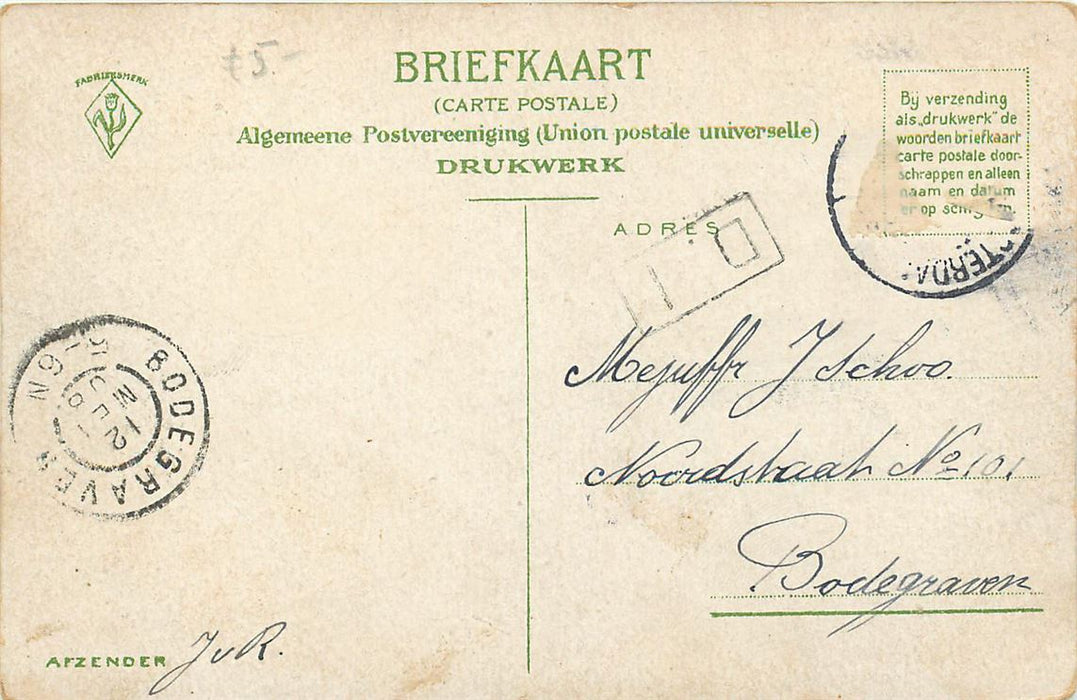 FABRIEKSMERK
£5-
BRIEFKAART
(CARTE POSTALE)
Algemeene Postvereeniging (Union postale universelle)
DRUKWERK
Bij verzending
als „drukwerk" de
woorden briefkaart
carte postale door-
schrappen en alleen
naam en datum
er op
TERDA
ADRES
D
I
Mejuffr J Schoo.
Noordstraat No 101
Bodegraven
BODEGRAVEN
12
5-6N
AFZENDER J v R.